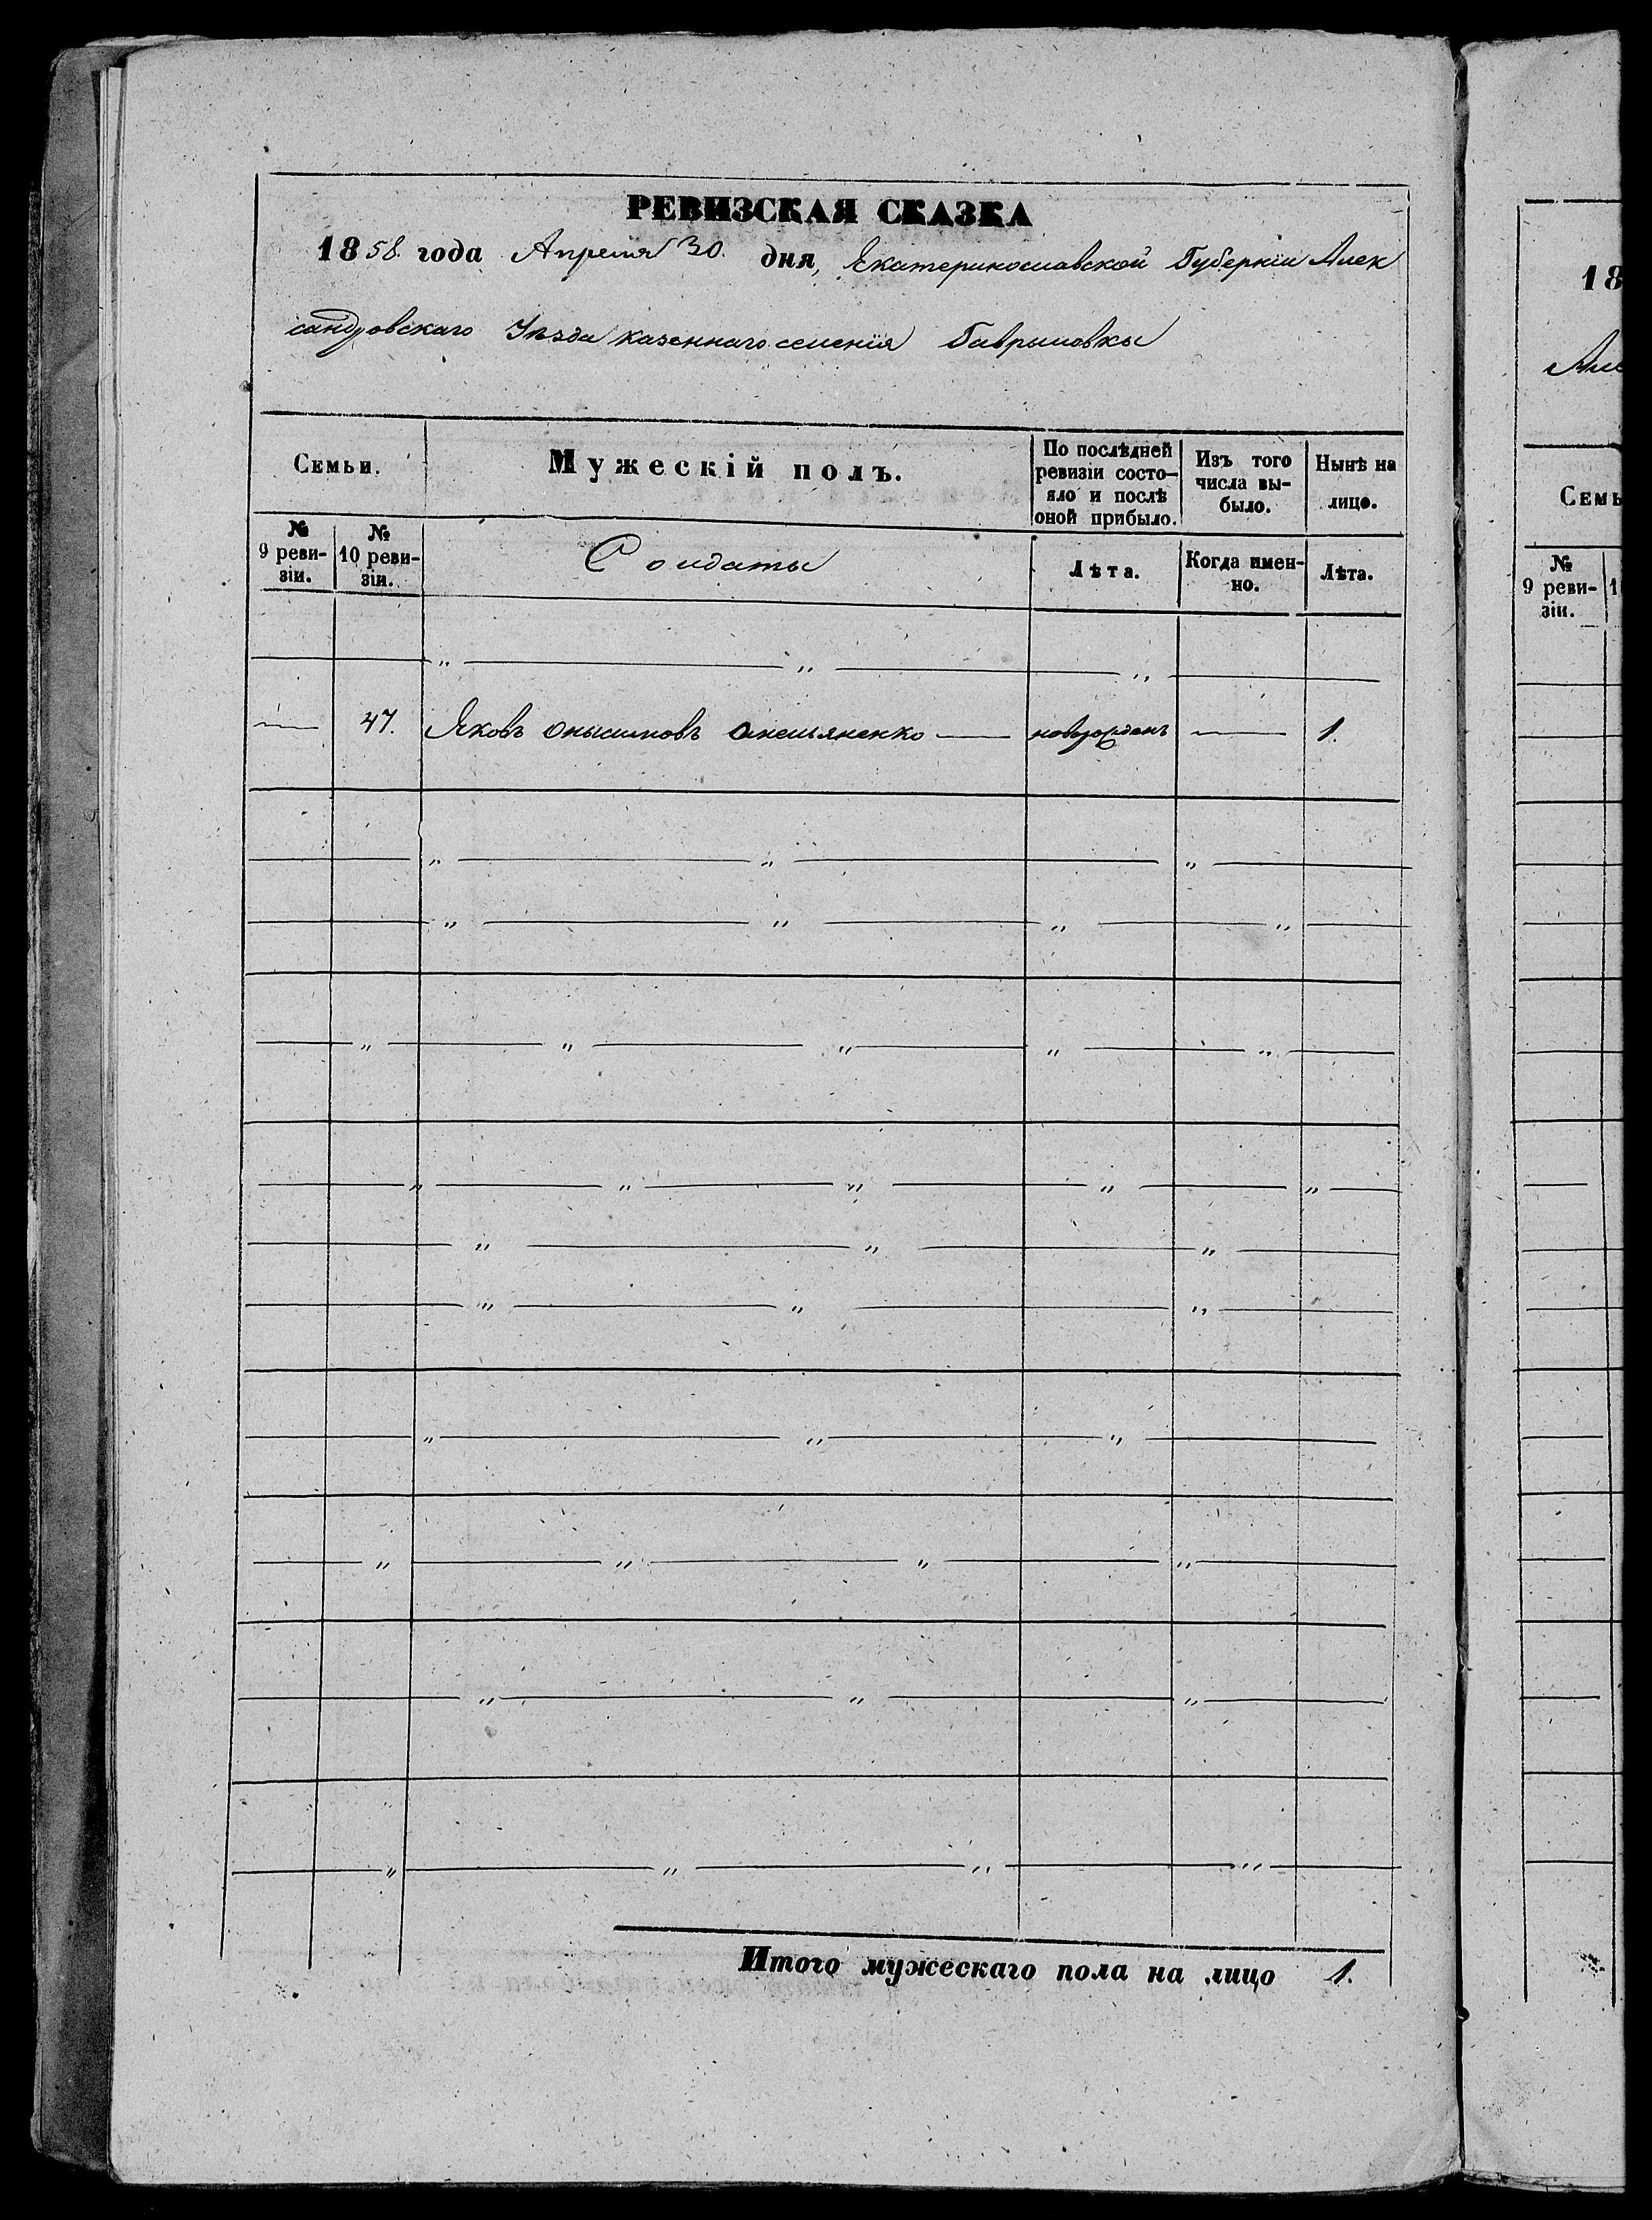 РЕВИЗСКАЯ СКАЗКА
1858. года Апреля 30. дня, Екатеринославской Губерніи Алек
сандровскаго Уѣзда казеннаго селенія Гавриловки
Семьи.
Мужескій полъ.
По послѣдней ревизіи состо-
яло и послѣ оной прибыло.
Изъ того числа вы-
было.
Нынѣ на лицо.
№ 9 реви-
зіи.
№ 10 реви-
зіи.
Солдаты
Лѣта.
Когда имен-
но.
Лѣта.
— 47. Яковъ Онысимовъ Омельяненко — новорожденъ — 1.
Итого мужескаго пола на лицо 1.
18
Але
Семь
№
9 реви- 1
зіи.